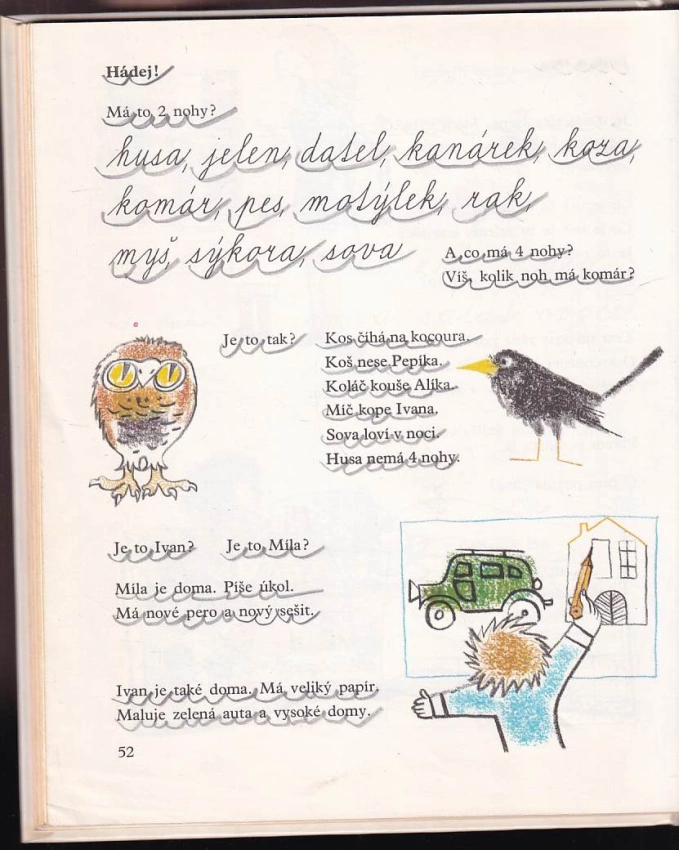 Hádej!
Má to 2 nohy?
husa, jelen, datel, kanárek, koza,
komár, pes, motýlek, rak,
myš, sýkora, sova
A co má 4 nohy?
Víš, kolik noh má komár?
Je to tak?
Kos číhá na kocoura.
Koš nese Pepíka.
Koláč kouše Alíka.
Míč kope Ivana.
Sova loví v noci.
Husa nemá 4 nohy.
Je to Ivan? Je to Míla?
Míla je doma. Píše úkol.
Má nové pero a nový sešit.
Ivan je také doma. Má veliký papír.
Maluje zelená auta a vysoké domy.
52